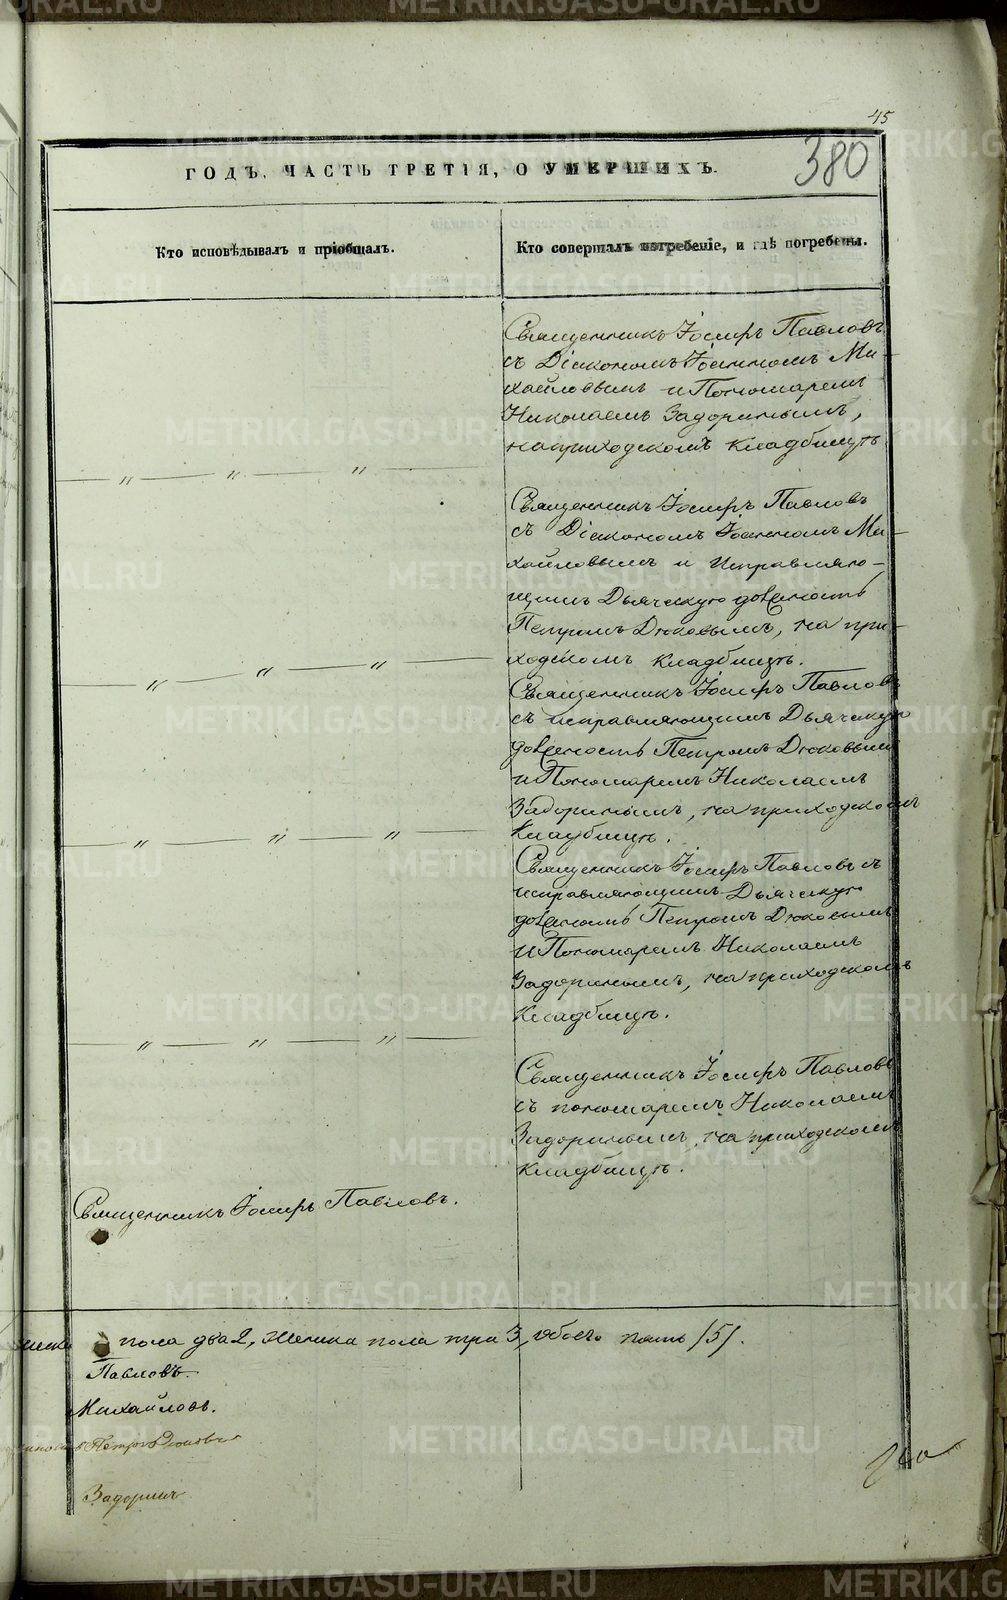 45
380
ГОДЪ, ЧАСТЬ ТРЕТІЯ, О УМЕРШИХЪ.
Кто исповѣдывалъ и пріобщалъ.
Кто совершалъ погребеніе, и гдѣ погребены.
Священникъ Іосифъ Павловъ
съ Діакономъ Іоанномъ Ми-
хайловымъ и Пономаремъ
Николаемъ Задоринымъ,
на приходскомъ кладбищѣ
— „ — „ — „ —
Священникъ Іосифъ Павловъ
съ Діакономъ Іоанномъ Ми-
хайловымъ и исправляю-
щимъ Дьяческую должность
Петромъ Дюковымъ, на при-
ходскомъ кладбищѣ.
— „ — „ — „ —
Священникъ Іосифъ Павловъ
съ исправляющимъ Дьяческую
должность Петромъ Дюковымъ
и Пономаремъ Николаемъ
Задоринымъ, на приходскомъ
кладбищѣ.
— „ — „ — „ —
Священникъ Іосифъ Павловъ съ
исправляющимъ Дьяческую
должность Петромъ Дюковымъ
и Пономаремъ Николаемъ
Задоринымъ, на приходскомъ
кладбищѣ.
— „ — „ — „ —
Священникъ Іосифъ Павловъ
съ пономаремъ Николаемъ
Задоринымъ, на приходскомъ
кладбищѣ.
Священникъ Іосифъ Павловъ.
пола два 2, женска пола три 3, обоего пять /5/.
Павловъ.
Михайловъ.
Петръ Дюковъ
Задоринъ
METRIKI.GASO-URAL.RU